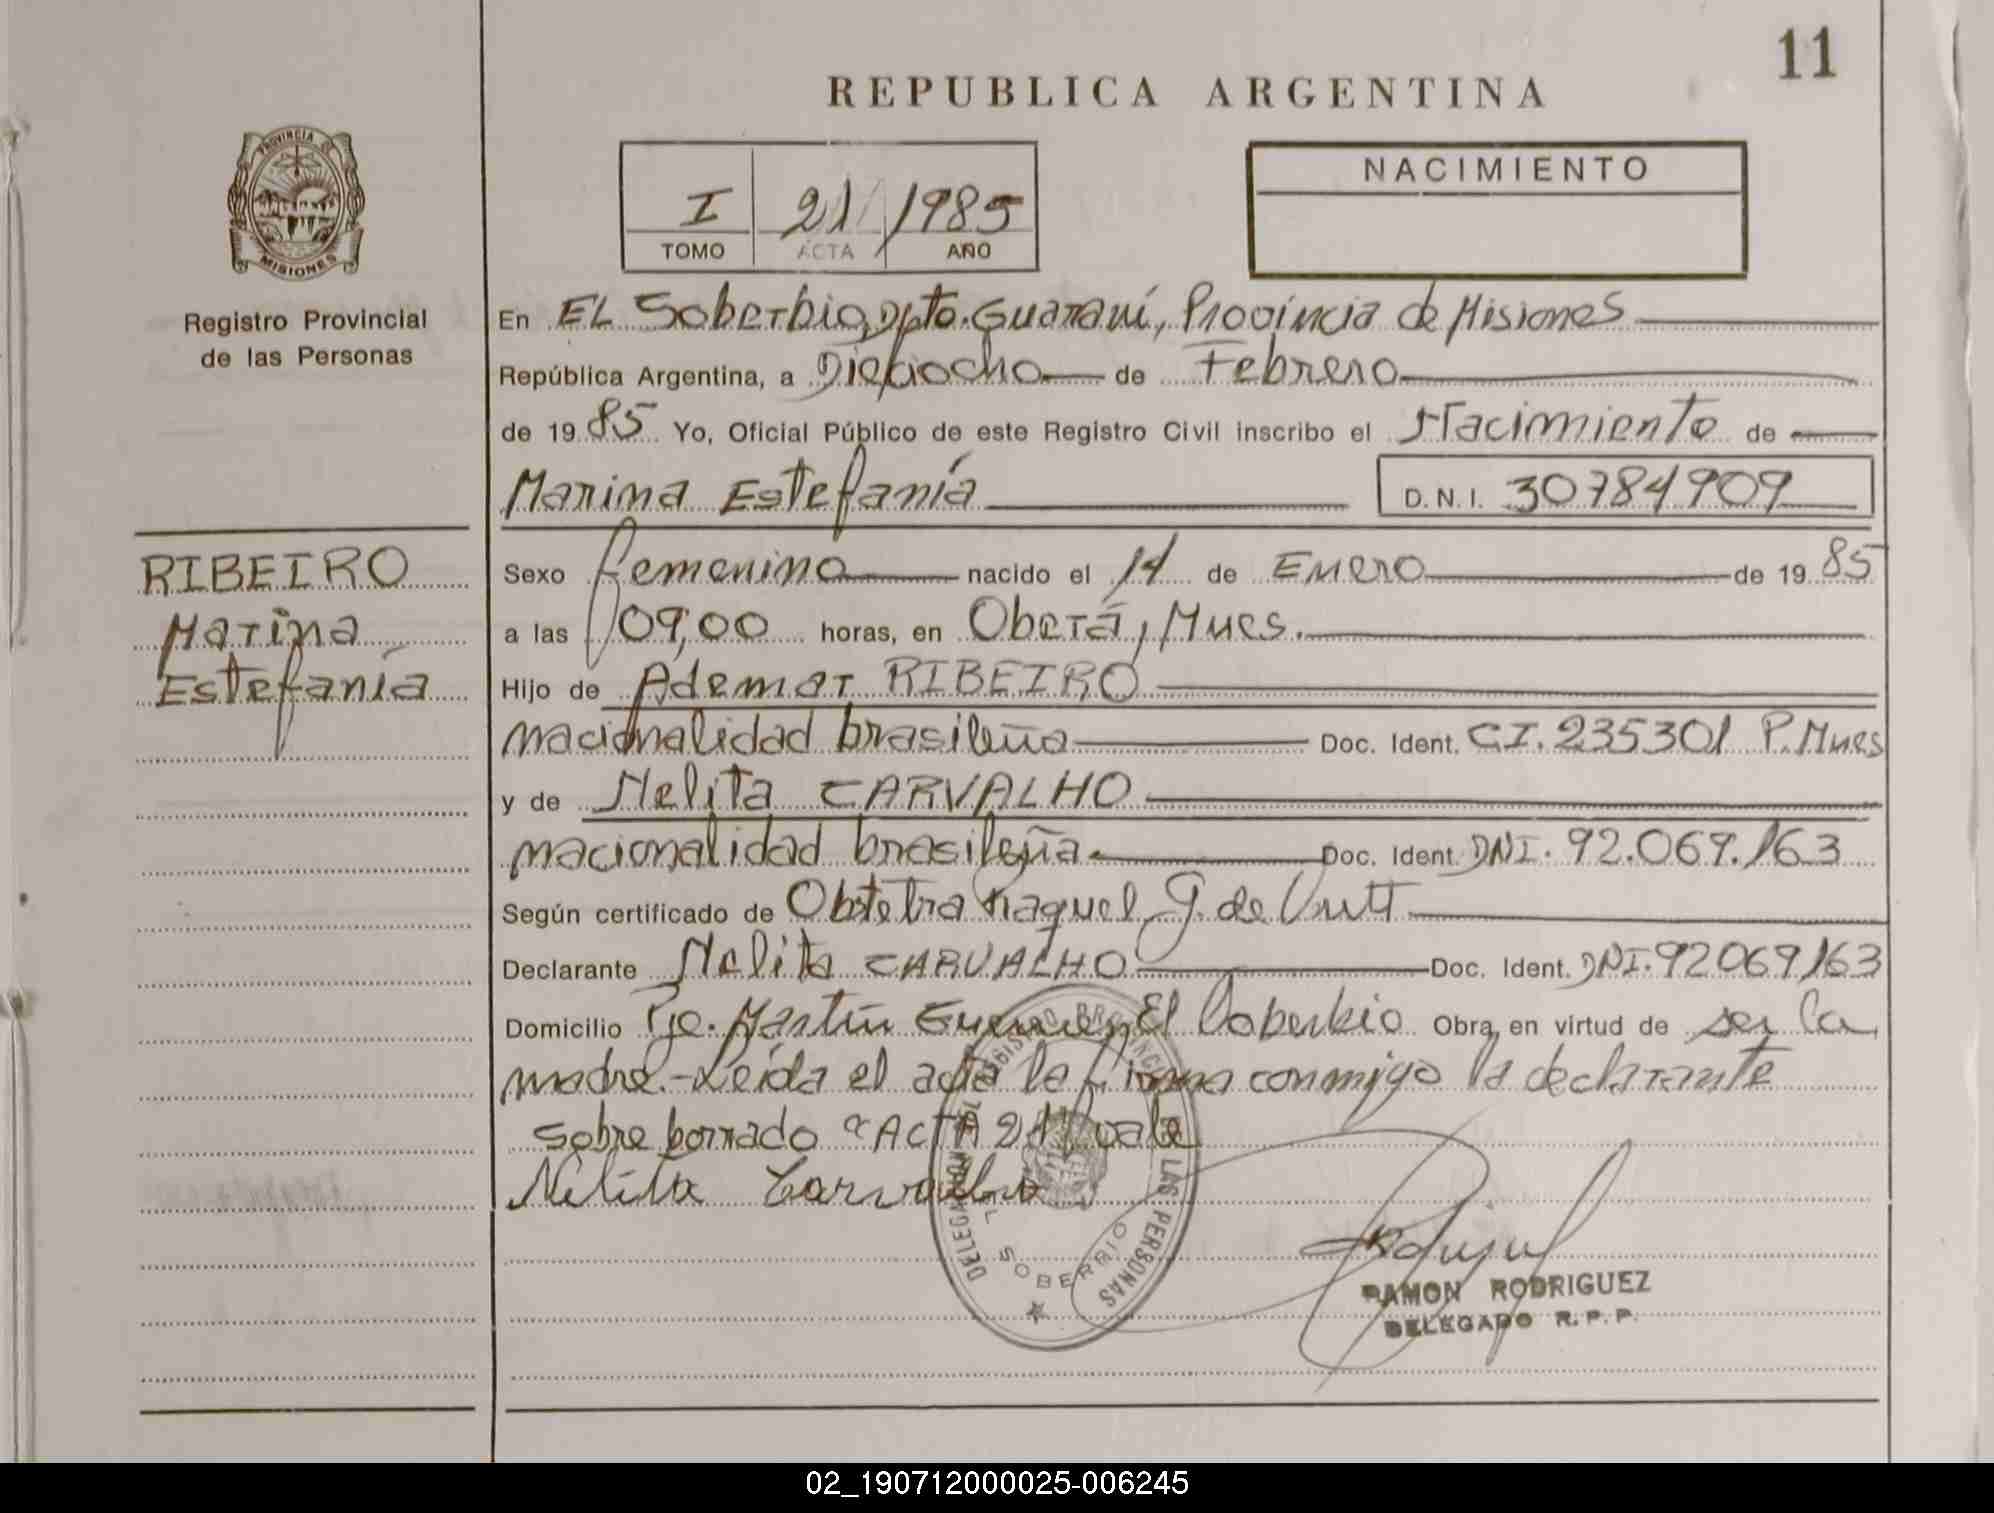 11
REPUBLICA ARGENTINA
PROVINCIA DE
MISIONES
Registro Provincial
de las Personas
I 21 1985
TOMO ACTA AÑO
NACIMIENTO
En EL Soberbio, Dpto. Guaraní, Provincia de Misiones
República Argentina, a Dieciocho de Febrero
de 1985 Yo, Oficial Público de este Registro Civil inscribo el Nacimiento de
Marina Estefanía D.N.I. 30784909
RIBEIRO
Marina
Estefanía
Sexo femenino nacido el 14 de Enero de 1985
a las 09,00 horas, en Oberá, Mnes.
Hijo de Ademar RIBEIRO
nacionalidad brasileña Doc. Ident. CI. 235301 P. Mnes
y de Nelita CARVALHO
nacionalidad brasileña Doc. Ident. DNI. 92.069.163
Según certificado de Obstetra Raquel G. de
Declarante Nelita CARVALHO Doc. Ident. DNI. 92069163
Domicilio Pje. Martín Guemes, El Soberbio Obra, en virtud de ser la
madre.- Leída el acta la firma conmigo la declarante
sobre borrado "ACTA 21" vale
Nelita Carvalho
DELEGACION EL REGISTRO PROVINCIAL LAS PERSONAS
EL SOBERBIO
RAMON RODRIGUEZ
DELEGADO R.P.P.
02_190712000025-006245